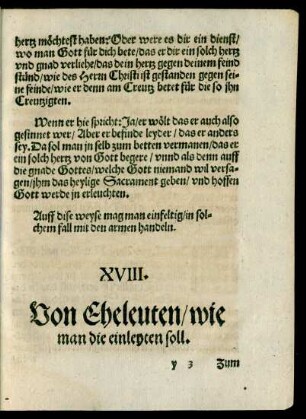 hertz möchtest haben: Oder were es dir ein dienst/
wo man Gott für dich bete/das er dir ein solch hertz
vnd gnad verliehe/das dein hertz gegen deinem feind
stünd/wie des Herrn Christi ist gestanden gegen sei-
ne feinde/wie er denn am Creutz betet für die so jhn
Creutzigten.
Wenn er hie spricht: Ja/er wölt das er auch also
gesinnet wer/Aber er befinde leyder/das er anders
sey. Da sol man jn selb zum betten vermanen/das er
ein solch hertz von Gott begere/vnnd als denn auff
die gnade Gottes/welche Gott niemand wil versa-
gen/jhm das heylige Sacrament geben/vnd hoffen
Gott werde jn erleuchten.
Auff dise weyse mag man einfeltig/in sol-
chem fall mit den armen handeln.
XVIII.
Von Eheleuten/wie
man die einleyten soll.
y 3 Zum